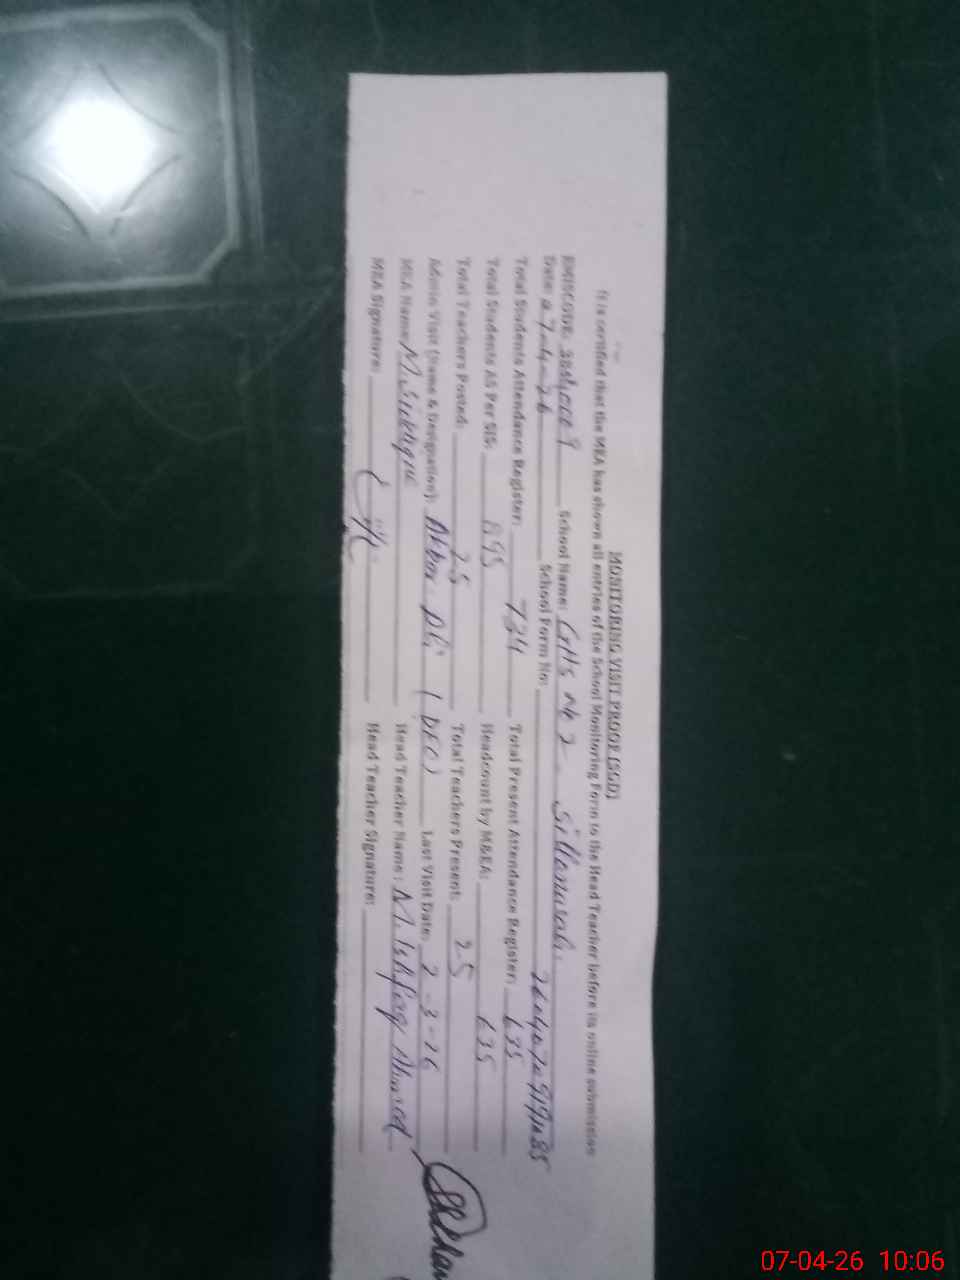 MONITORING VISIT PROOF (SGD)
It is certified that the MEA has shown all entries of the School Monitoring Form to the Head Teacher before its online submission
EMISCODE: School Name: GHS No 2,
Date: 07-4-26 School Form No:
Total Students Attendance Register: 734 Total Present Attendance Register: 635
Total Students AS Per SIS: 895 Headcount by MEA: 635
Total Teachers Posted: 25 Total Teachers Present: 25
Admin Visit (Name & Designation) Akbar Last Visit Date: 2-3-26
MEA Name: M. Head Teacher Name: M. Ishfaq Ahmed
MEA Signature: Head Teacher Signature:
07-04-26 10:06